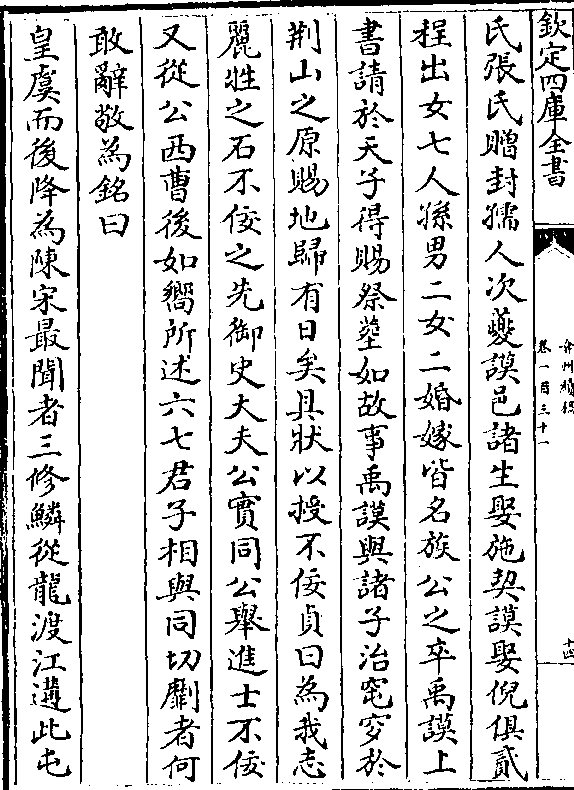 欽定四庫全書
弇州續稿
卷一百三十一
十四
氏張氏贈封孺人次夔謨邑諸生娶施契謨娶倪俱貳
程出女七人孫男二女二婚嫁皆名族公之卒禹謨上
書請於天子得賜祭塟如故事禹謨與諸子治窀穸於
荆山之原賜地歸有日矣具狀以授不佞貞曰為我志
麗牲之石不佞之先御史大夫公實同公舉進士不佞
又從公西曹後如嚮所述六七君子相與同切劘者何
敢辭敬為銘曰
皇虞而後降為陳宋最聞者三修鱗從龍渡江遘此屯